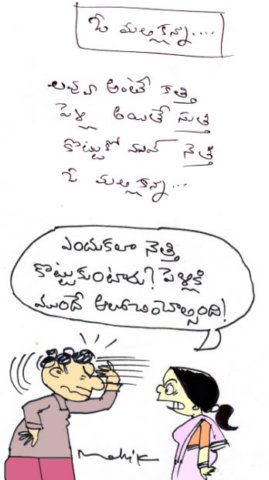 ఓ మల్లన్నా....
లవ్వు అంటే కత్తి
పెళ్లి అయితే సుత్తి
కొట్టుకో నెత్తి
ఓ మల్లన్నా...
ఎందుకలా నెత్తి
కొట్టుకుంటారు? పెళ్లికి
ముందే ఆలోచించాల్సింది!